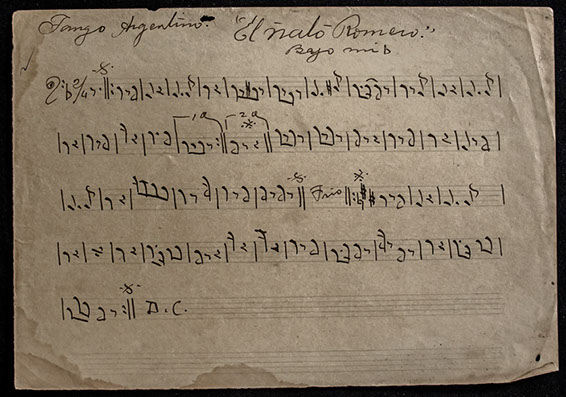 Tango Argentino. "El ñato Romero."
Bajo mib
2/4
1a 2a
Trio
D.C.